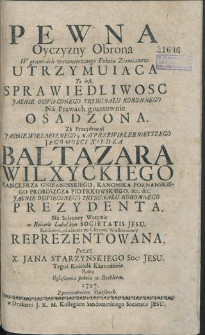 PEWNA
Oyczyzny Obrona
W granicách wewnętrznego Pokoiu Ziemiánow
UTRZYMUIĄCA
To iest
SPRAWIEDLIWOSC
JASNIE OSWIECONEGO TRYBUNALU KORONNEGO
Ná Prawách gruntownie
OSADZONA.
Zá Prezydencyi
JASNIE WIELMOZNEGO, NAYPRZEWIELEBNIEYSZEGO
JEGOMOSCI XIEDZA
BALTAZARA
WILXYCKIEGO
KANCLERZA GNIEZNINSKIEGO, KANONIKA POZNANSKIE-
GO PROBOSZCZA PIOTRKOWSKIEGO, &c. &c.
JASNIE OSWIECONEGO TRYBUNALU KORONNEGO
PREZYDENTA,
Ná Solenney Wotywie
w Kościele Lubelskim SOCIETATIS JESU,
REPREZENTOWANA,
Przez
X. JANA STARZYNSKIEGO Soc: JESU,
Tegoż Kościołá Káznodzieię.
Roku
1727.
Zpozwoleniem Stárszych.
w Drukárni J. K. M. Kollegium Sandomirskiego Societatis JESU,